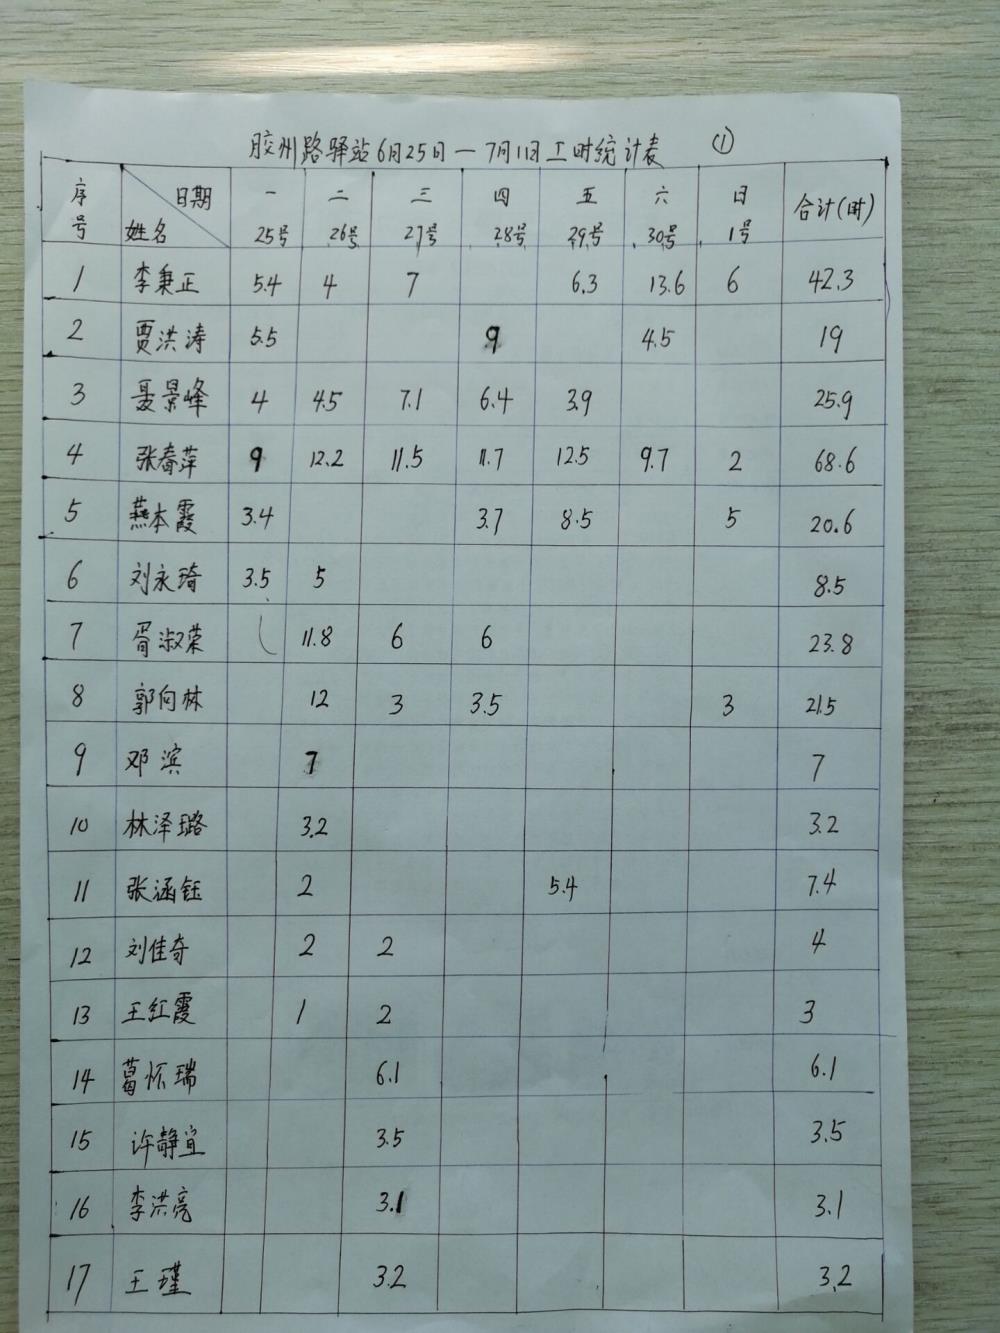 胶州路驿站6月25日—7月1日工时统计表 ①
序号 日期 姓名 一 25号 二 26号 三 27号 四 28号 五 29号 六 30号 日 1号 合计(时)
1 李秉正 5.4 4 7 6.3 13.6 6 42.3
2 贾洪涛 5.5 9 4.5 19
3 聂景峰 4 4.5 7.1 6.4 3.9 25.9
4 张春萍 9 12.2 11.5 11.7 12.5 9.7 2 68.6
5 燕本霞 3.4 3.7 8.5 5 20.6
6 刘永琦 3.5 5 8.5
7 胥淑荣 11.8 6 6 23.8
8 郭向林 12 3 3.5 3 21.5
9 邓滨 7 7
10 林泽璐 3.2 3.2
11 张涵钰 2 5.4 7.4
12 刘佳奇 2 2 4
13 王红霞 1 2 3
14 葛怀瑞 6.1 6.1
15 许静宜 3.5 3.5
16 李洪亮 3.1 3.1
17 王瑾 3.2 3.2